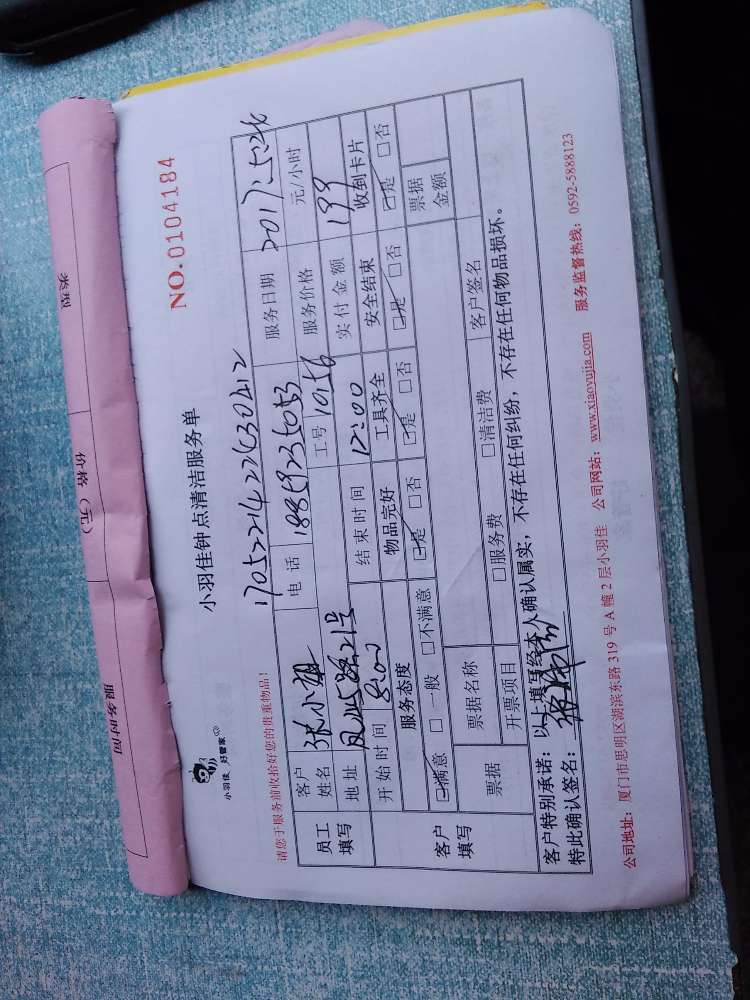 类型
价格（元）
服务时间
NO.0104184
小羽佳钟点清洁服务单
小羽佳 好管家
请您于服务前收拾好您的贵重物品!
员工填写
客户姓名 张小姐 电话 18859236053 服务日期 2017.5.26
地址 凤屿路21号 工号 1056 服务价格 元/小时
开始时间 8:00 结束时间 12:00 实付金额 199
客户填写
服务态度 物品完好 工具齐全 安全结束 收到卡片
☑满意 □一般 □不满意 ☑是 □否 ☑是 □否 ☑是 □否 ☑是 □否
票据 票据名称 票据金额
开票项目 □服务费 □清洁费 客户签名
客户特别承诺：以上填写经本人确认属实，不存在任何纠纷，不存在任何物品损坏。
特此确认签名：
公司地址：厦门市思明区湖滨东路 319 号 A 幢 2 层小羽佳 公司网站：www.xiaoyujia.com 服务监督热线：0592-5888123